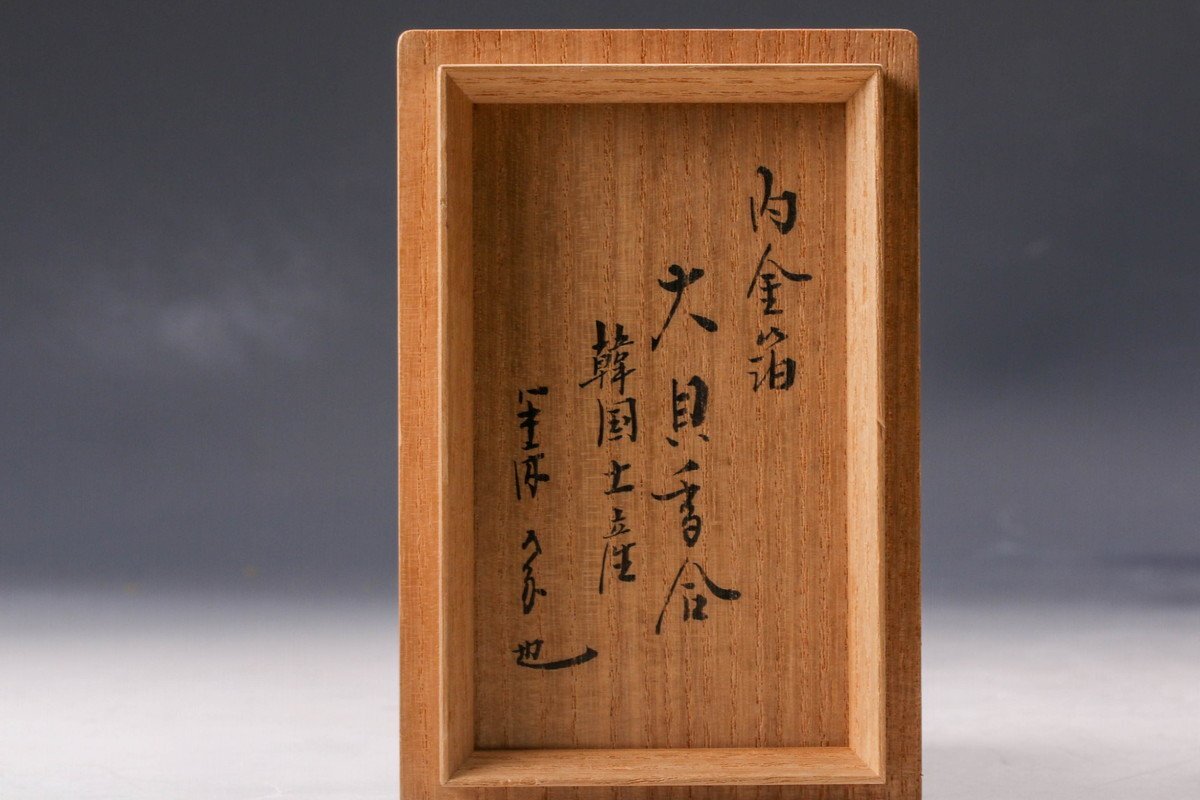 内金箔
大貝香合
韓国土産
也